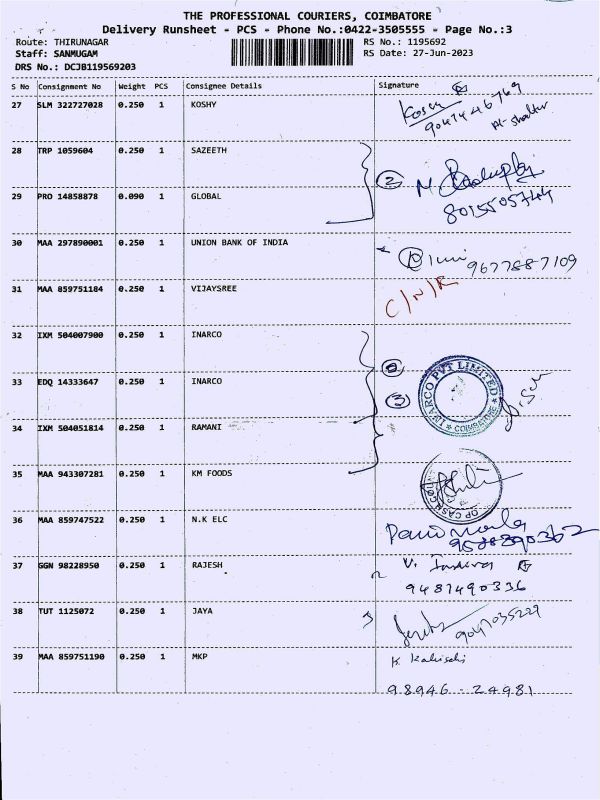 THE PROFESSIONAL COURIERS, COIMBATORE
Delivery Runsheet - PCS - Phone No.:0422-3505555 - Page No.:3
Route: THIRUNAGAR RS No.: 1195692
Staff: SANMUGAM RS Date: 27-Jun-2023
DRS No.: DCJB119569203
S No Consignment No Weight PCS Consignee Details Signature
27 SLM 322727028 0.250 1 KOSHY
28 TRP 1059604 0.250 1 SAZEETH
29 PRO 14858878 0.090 1 GLOBAL
2
30 MAA 297890001 0.250 1 UNION BANK OF INDIA
9677887109
31 MAA 859751184 0.250 1 VIJAYSREE
C/N/R
32 IXM 504007900 0.250 1 INARCO
33 EDQ 14333647 0.250 1 INARCO
3
INARCO PVT LIMITED
COIMBATORE
34 IXM 504051814 0.250 1 RAMANI
35 MAA 943307281 0.250 1 KM FOODS
36 MAA 859747522 0.250 1 N.K ELC
37 GGN 98228950 0.250 1 RAJESH
9487490336
38 TUT 1125072 0.250 1 JAYA
9047035229
39 MAA 859751190 0.250 1 MKP
98946 - 24981